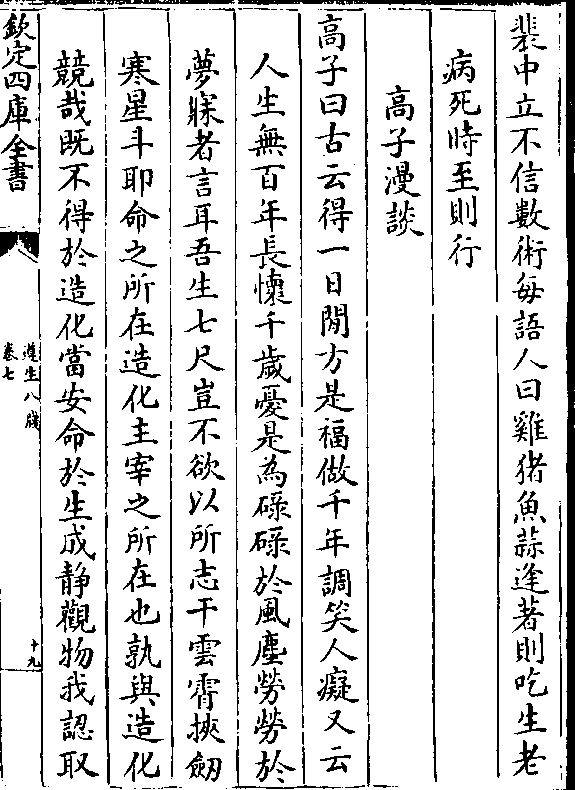 裴中立不信數術每語人曰雞猪魚蒜逢著則吃生老
病死時至則行
高子漫談
高子曰古云得一日閒方是福做千年調笑人癡又云
人生無百年長懷千歲憂是為碌碌於風塵勞勞於
夢寐者言耳吾生七尺豈不欲以所志干雲霄挾劒
寒星斗耶命之所在造化主宰之所在也孰與造化
競哉既不得於造化當安命於生成静觀物我認取
欽定四庫全書
遵生八牋
卷七
十九